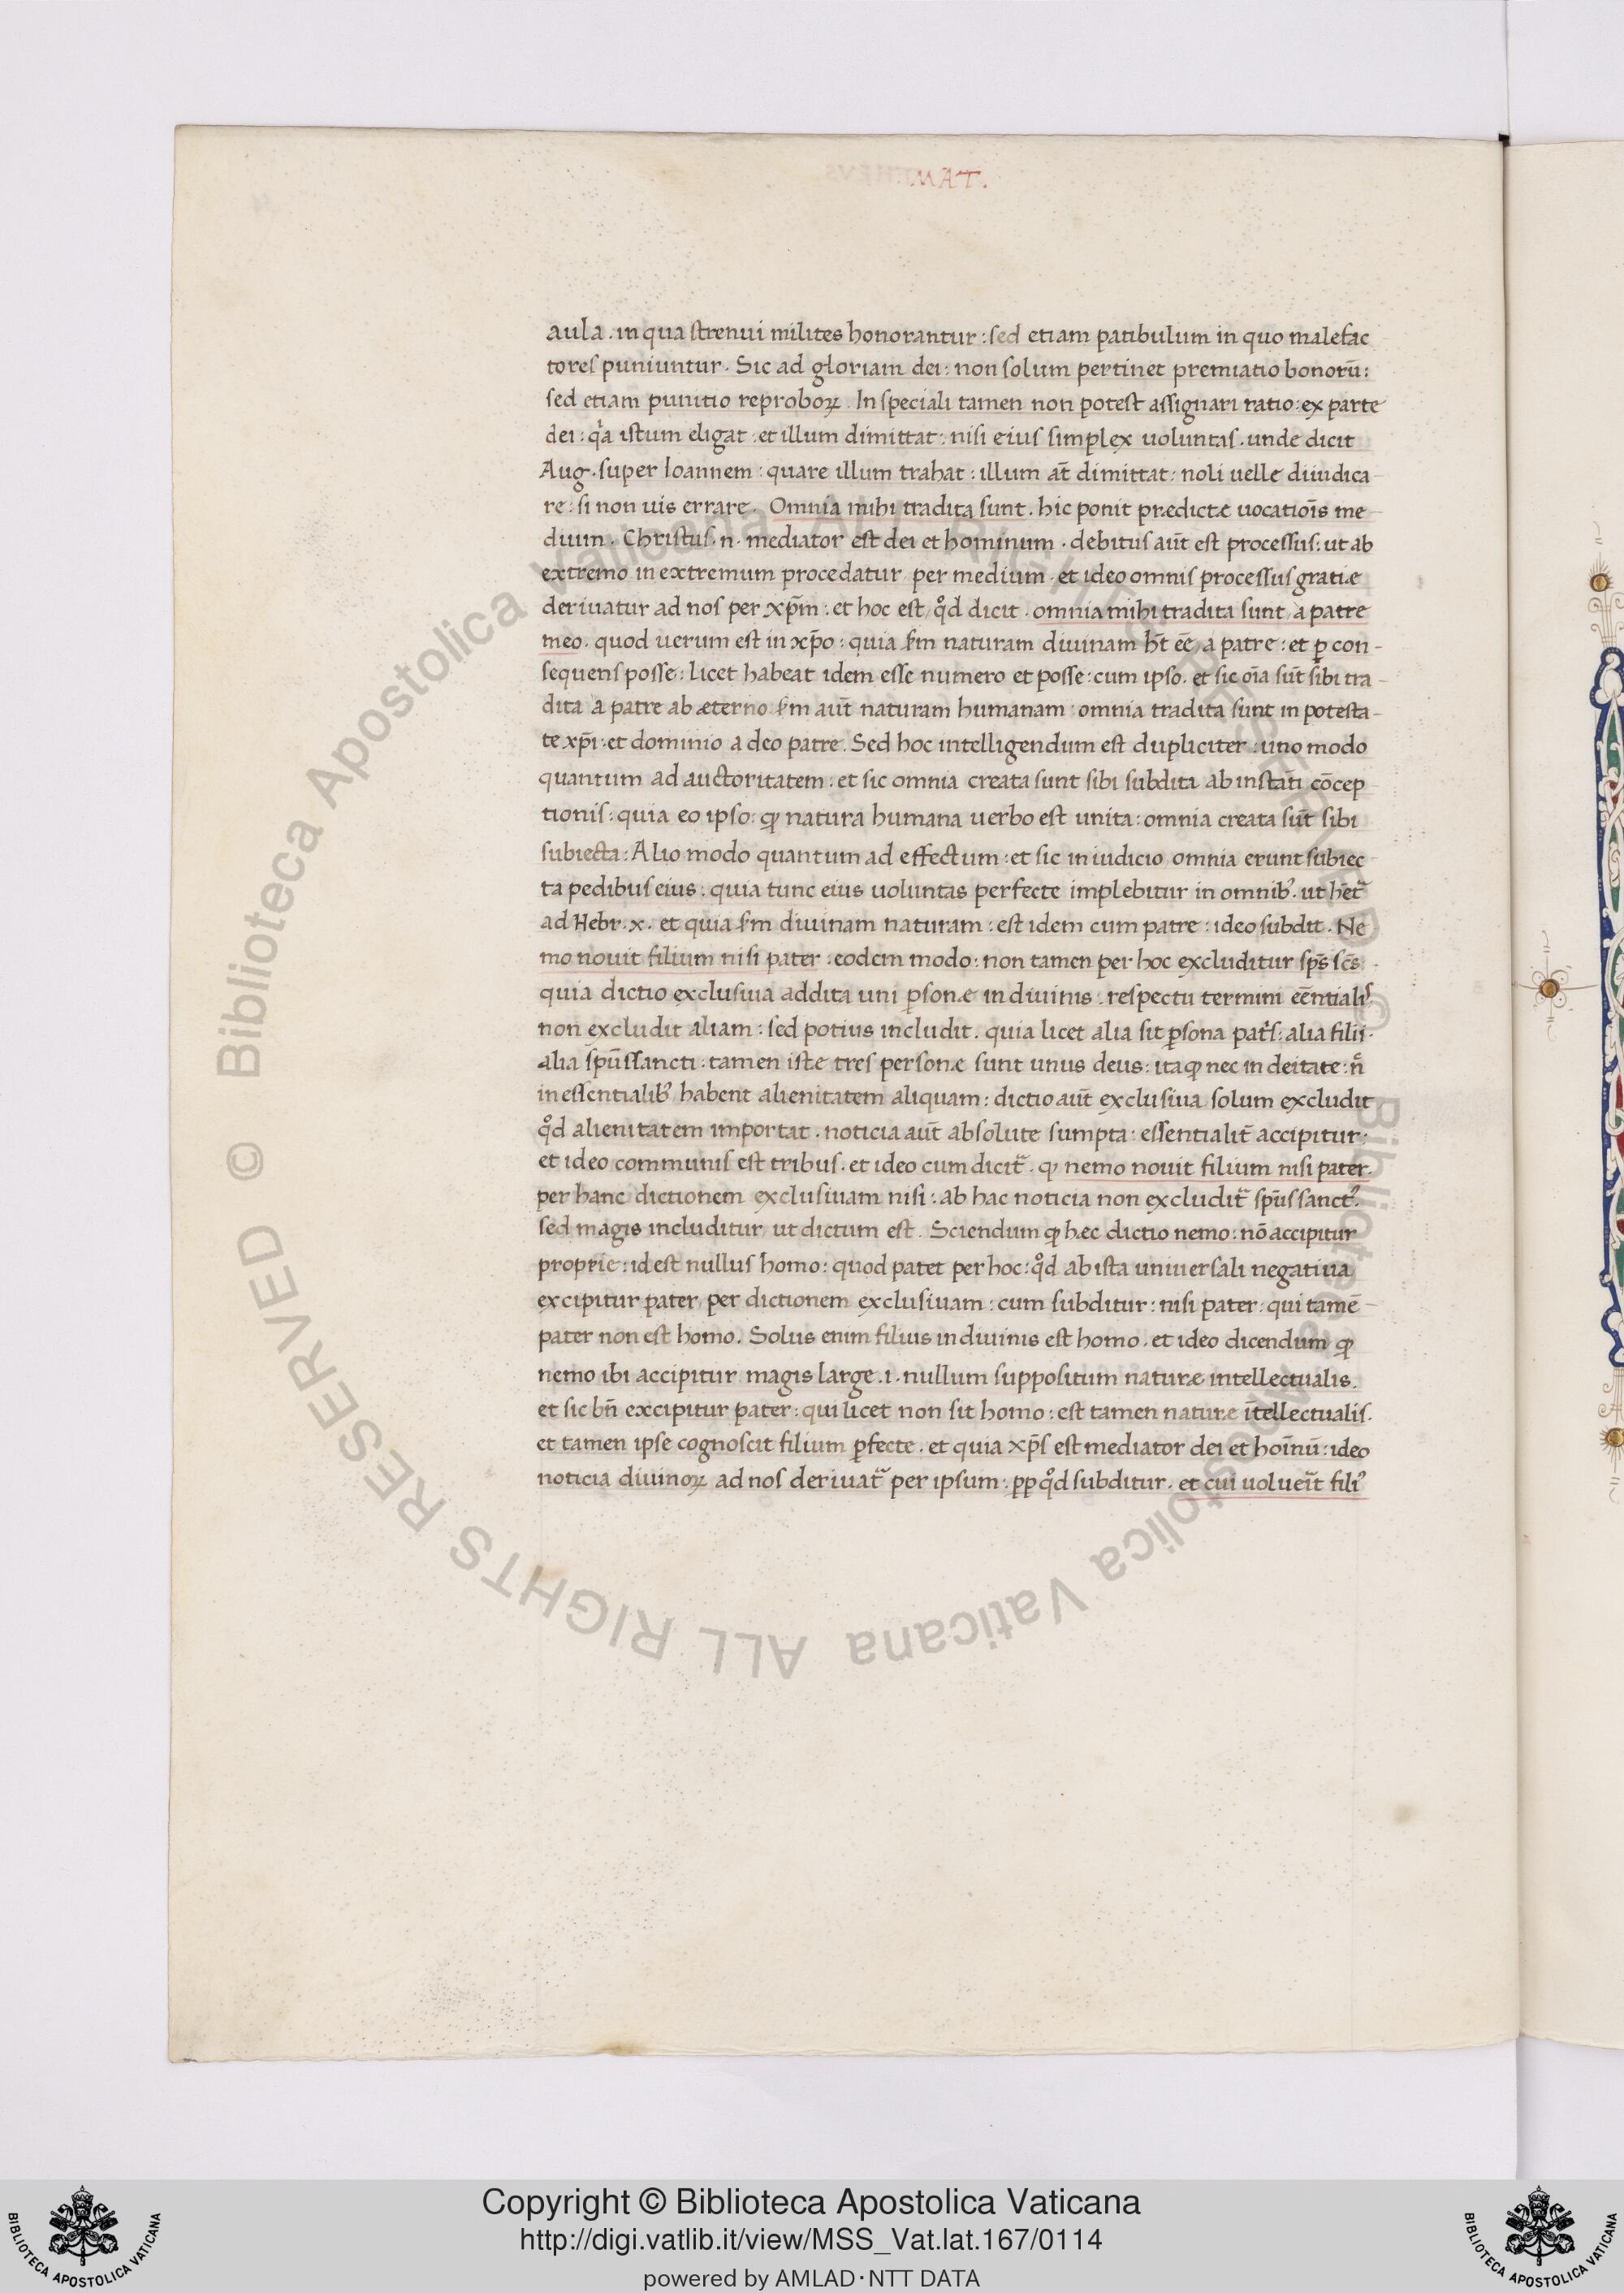 MAT.
aula . in qua strenui milites honorantur : sed etiam patibulum in quo malefac
tores puniuntur . Sic ad gloriam dei : non solum pertinet premiatio bonorū :
sed etiam punitio reproboꝝ . In speciali tamen non potest assignari ratio : ex parte
dei : qͣa istum eligat : et illum dimittat : nisi eius simplex uoluntas . unde dicit
Aug . super Ioannem : quare illum trahat : illum at̄ dimittat : noli uelle diiudica-
re : si non uis errare . Omnia mihi tradita sunt . hic ponit prædictæ uocatiōis me
dium . Christus . n . mediator est dei et hominum . debitus aūt est processus : ut ab
extremo in extremum procedatur per medium . et ideo omnis processus gratiæ
deriuatur ad nos per xp̄m : et hoc est qͦd dicit . omnia mihi tradita sunt a patre
meo . quod uerum est in xp̄o : quia ẜm naturam diuinam ht̄ eē a patre : et ꝑ con-
sequens posse : licet habeat idem esse numero et posse : cum ipso . et sic oīa sūt sibi tra-
dita a patre ab æterno ẜm aūt naturam humanam : omnia tradita sunt in potesta-
te xp̄i : et dominio a deo patre . Sed hoc intelligendum est dupliciter : uno modo
quantum ad auctoritatem : et sic omnia creata sunt sibi subdita ab instāti cōcep
tionis : quia eo ipso : ꝙ natura humana uerbo est unita : omnia creata sūt sibi
subiecta : Alio modo quantum ad effectum : et sic in iudicio omnia erunt subiec
ta pedibus eius : quia tunc eius uoluntas perfecte implebitur in omnibꝰ . ut het̄
ad Hebr . x . et quia ẜm diuinam naturam : est idem cum patre : ideo subdit . Ne
mo nouit filium nisi pater : eodem modo : non tamen per hoc excluditur sp̄s sc̄s
quia dictio exclusiua addita uni ꝑsonæ in diuinis . respectu termini eēntialis
non excludit aliam : sed potius includit . quia licet alia sit ꝑsona pat̄s : alia filii .
alia sp̄ussancti : tamen iste tres personæ sunt unus deus : ita ꝙ nec in deitate : n̄
in essentialibꝰ habent alienitatem aliquam : dictio aūt exclusiua solum excludit
qͦd alienitatem importat . noticia aūt absolute sumpta : essentialit̄ accipitur :
et ideo communis est tribus . et ideo cum dicit̄ . ꝙ nemo nouit filium nisi pater .
per hanc dictionem exclusiuam nisi : ab hac noticia non excludit̄ sp̄us sanctꝰ .
sed magis includitur ut dictum est . Sciendum ꝙ hæc dictio nemo : nō accipitur
proprie : id est nullus homo : quod patet per hoc : qͦd ab ista uniuersali negatiua
excipitur pater per dictionem exclusiuam : cum subditur : nisi pater : qui tamē
pater non est homo . Solus enim filius in diuinis est homo . et ideo dicendum ꝙ
nemo ibi accipitur magis large . i . nullum suppositum naturæ intellectualis .
et sic bn̄ excipitur pater : qui licet non sit homo : est tamen naturæ ītellectualis .
et tamen ipse cognoscit filium ꝑfecte . et quia xp̄s est mediator dei et hoīnū : ideo
noticia diuinoꝝ ad nos deriuat̄ per ipsum : ꝓp qͦd subditur . et cui uolueīt filiꝰ
© Biblioteca Apostolica Vaticana ALL RIGHTS RESERVED © Biblioteca Apostolica Vaticana ALL RIGHTS RESERVED
Copyright © Biblioteca Apostolica Vaticana
http://digi.vatlib.it/view/MSS_Vat.lat.167/0114
powered by AMLAD·NTT DATA
BIBLIOTECA APOSTOLICA VATICANA
BIBLIOTECA APOSTOLICA VATICANA